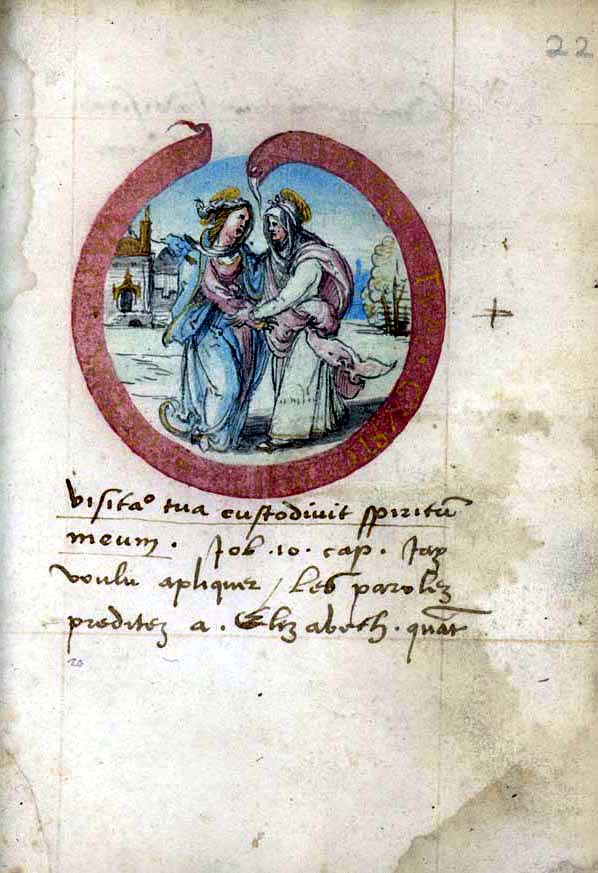 22
visita° tua custodivit spiritū
meum . Job .10. cap. Jay
voulu apliquer / les parolez
preditez a . Elizabech . quāt
20